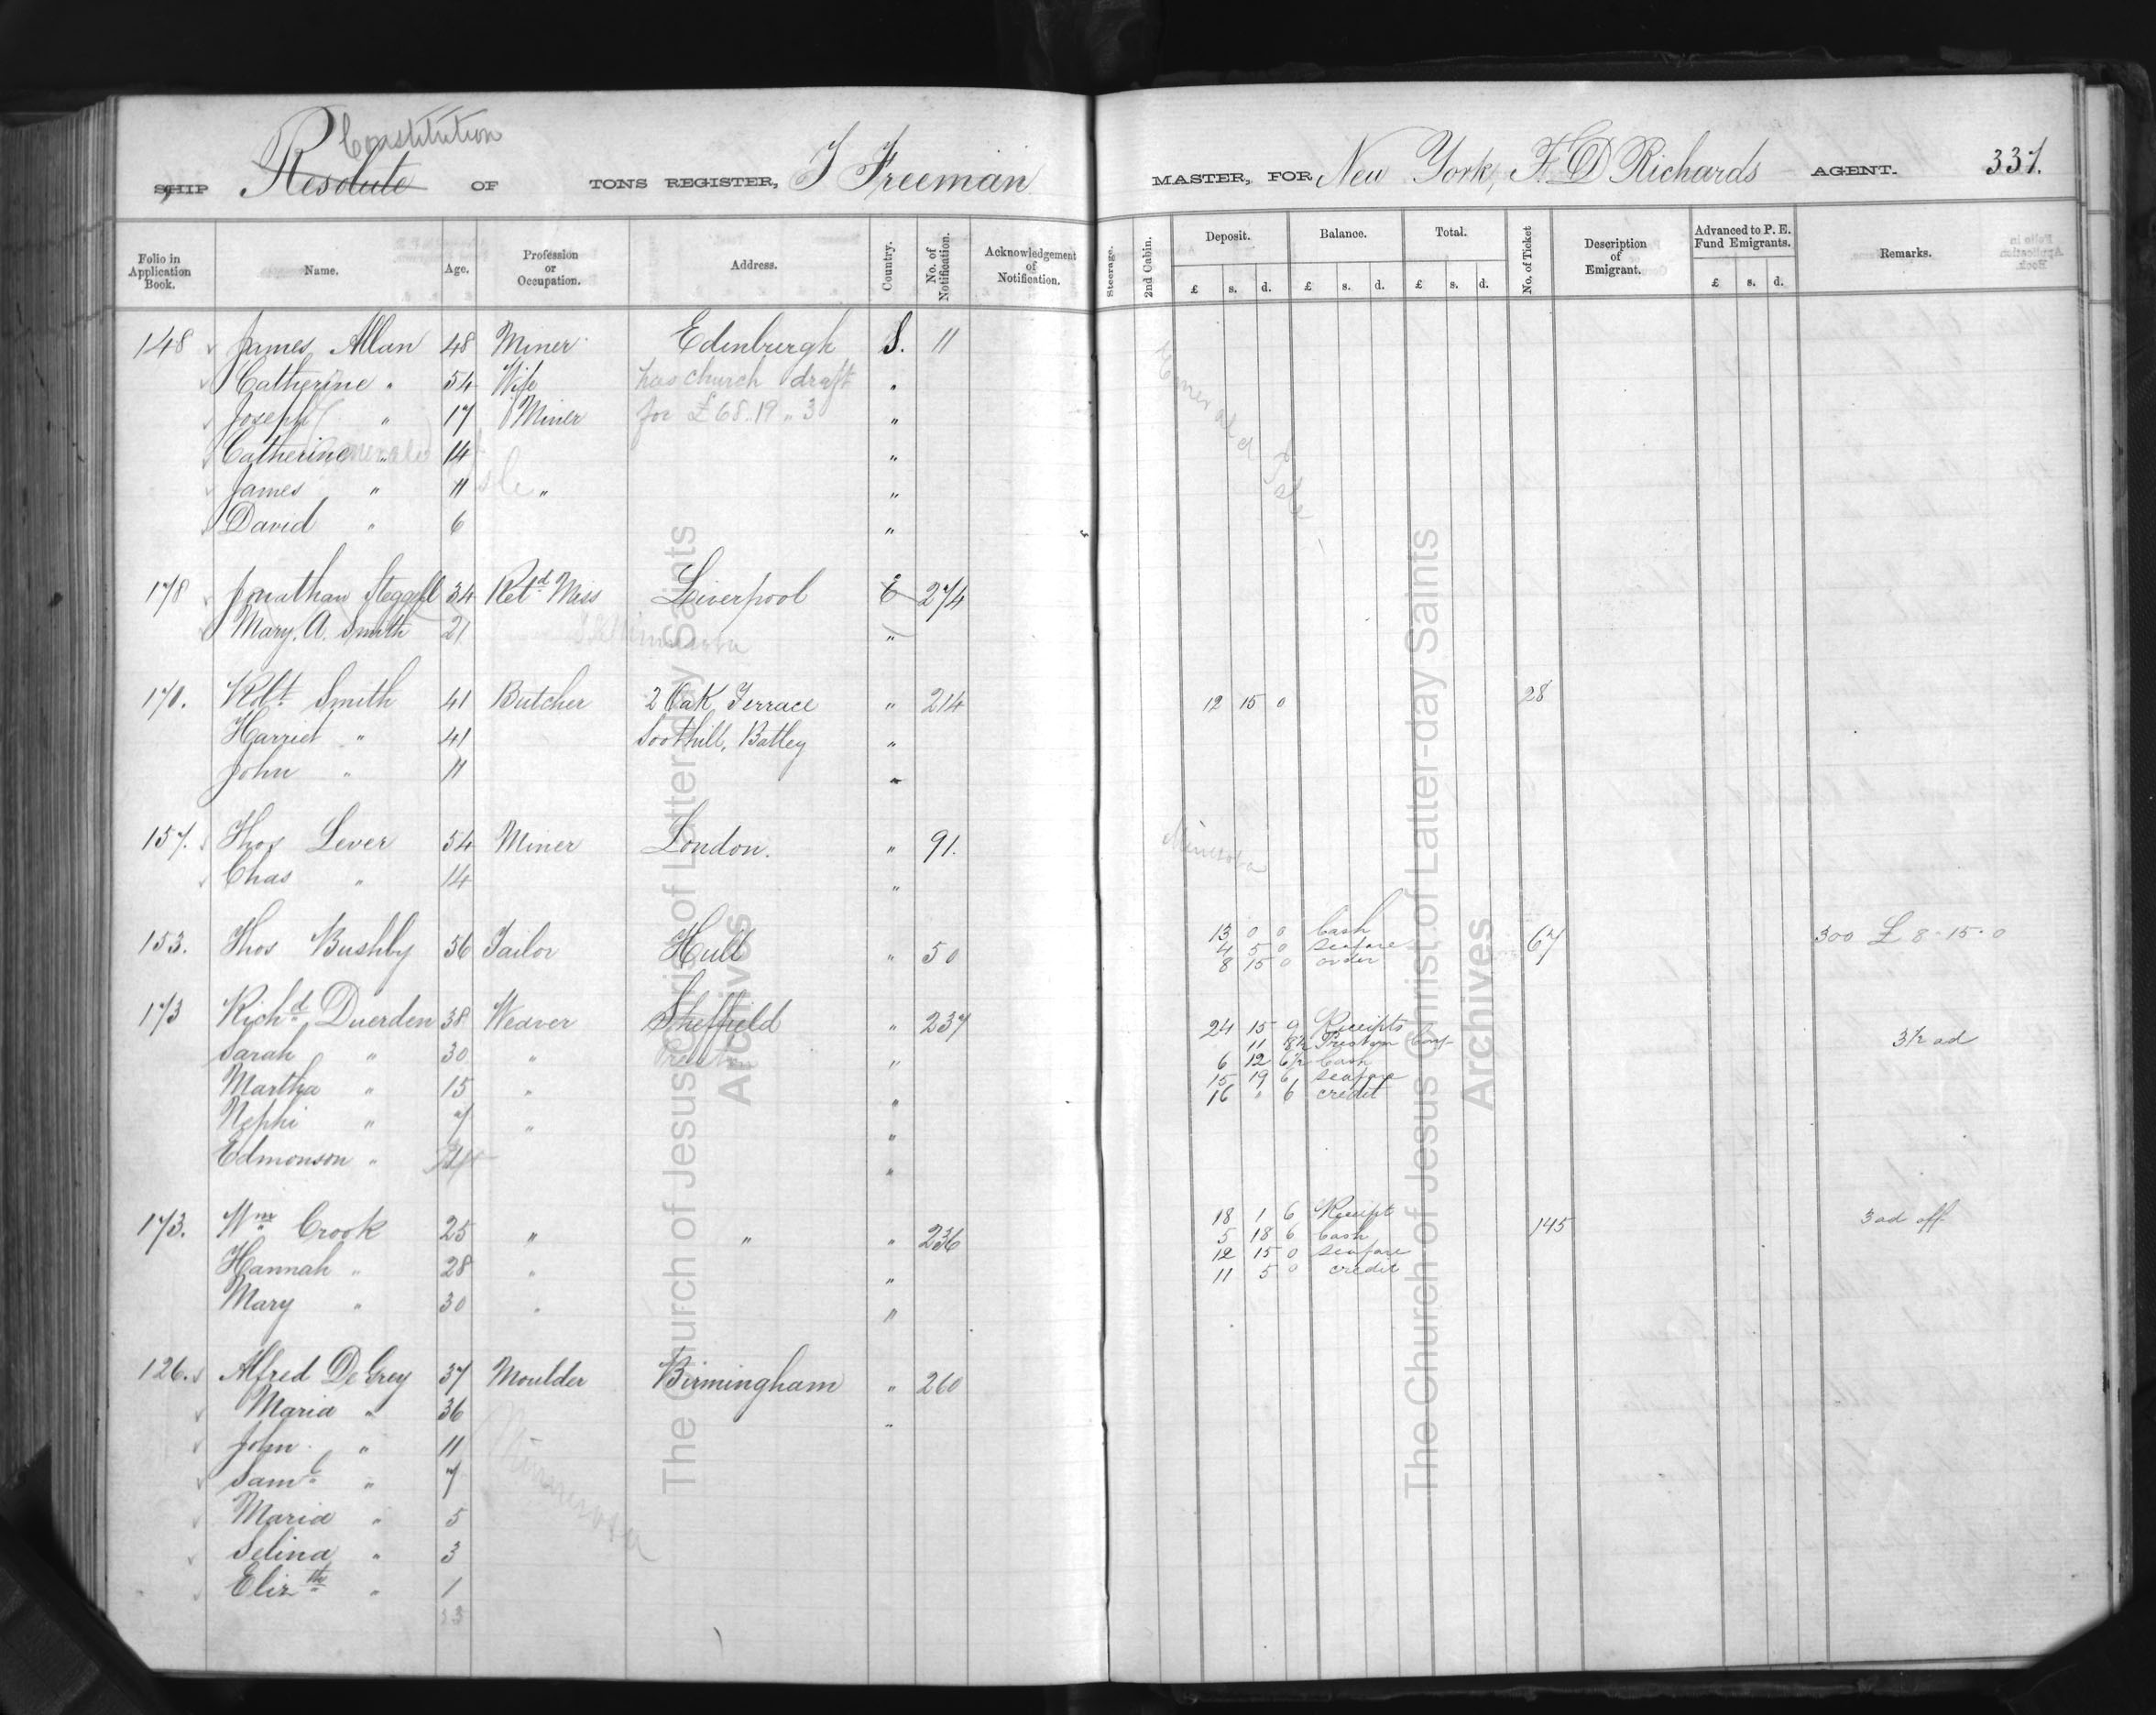 Constitution
SHIP Resolute OF TONS REGISTER, J Freeman MASTER, FOR New York, F. D Richards AGENT. 337.
Folio in Application Book. Name. Age. Profession or Occupation. Address. Country. No. of Notification. Acknowledgement of Notification. Steerage. 2nd Cabin. Deposit. £ s. d. Balance. £ s. d. Total. £ s. d. No. of Ticket Description of Emigrant. Advanced to P. E. Fund Emigrants. £ s. d. Remarks.
148 James Allan 48 Miner Edinburgh S. 11
Catherine " 54 Wife has church draft "
Joseph " 17 Miner for £68..19..3 "
Catherine " 14 "
James " 11 " "
David " 6 "
Emerald Isle
178 Jonathan Steggell 34 Retd Miss Liverpool E 274
Mary. A. Smith 21 "
170. Robt Smith 41 Butcher 2 Oak Terrace " 214 12 15 0 28
Harriet " 41 Soothill, Batley "
John " 11 "
157. Thos Lever 54 Miner London. " 91.
Chas " 14 "
Minesota
153. Thos Bushby 56 Tailor Hull " 50 13 0 0 Cash 67 300 £ 8-15-0
4 5 0 seafare
8 15 0 order
173 Richd Duerden 38 Weaver Sheffield " 237 24 15 9 Receipts
Sarah " 30 " Preston " 11 Preston 3½ ad
6 12 6½ Cash
Martha " 15 " " 15 19 6 seafare
16 " 6 credit
Nephi " 7 " "
Edmonson " "
173. Wm Crook 25 " " " 236 18 1 6 Receipt 145 3 ad off
5 18 6 Cash
Hannah " 28 " " 12 15 0 seafare
11 5 0 credit
Mary " 30 " "
126. Alfred De Grey 37 Moulder Birmingham " 260
Maria " 36 "
John " 11
Saml " 7
Maria " 5
Selina " 3
Elizth " 1
33
Minnesota
The Church of Jesus Christ of Latter-day Saints
Archives
The Church of Jesus Christ of Latter-day Saints
Archives